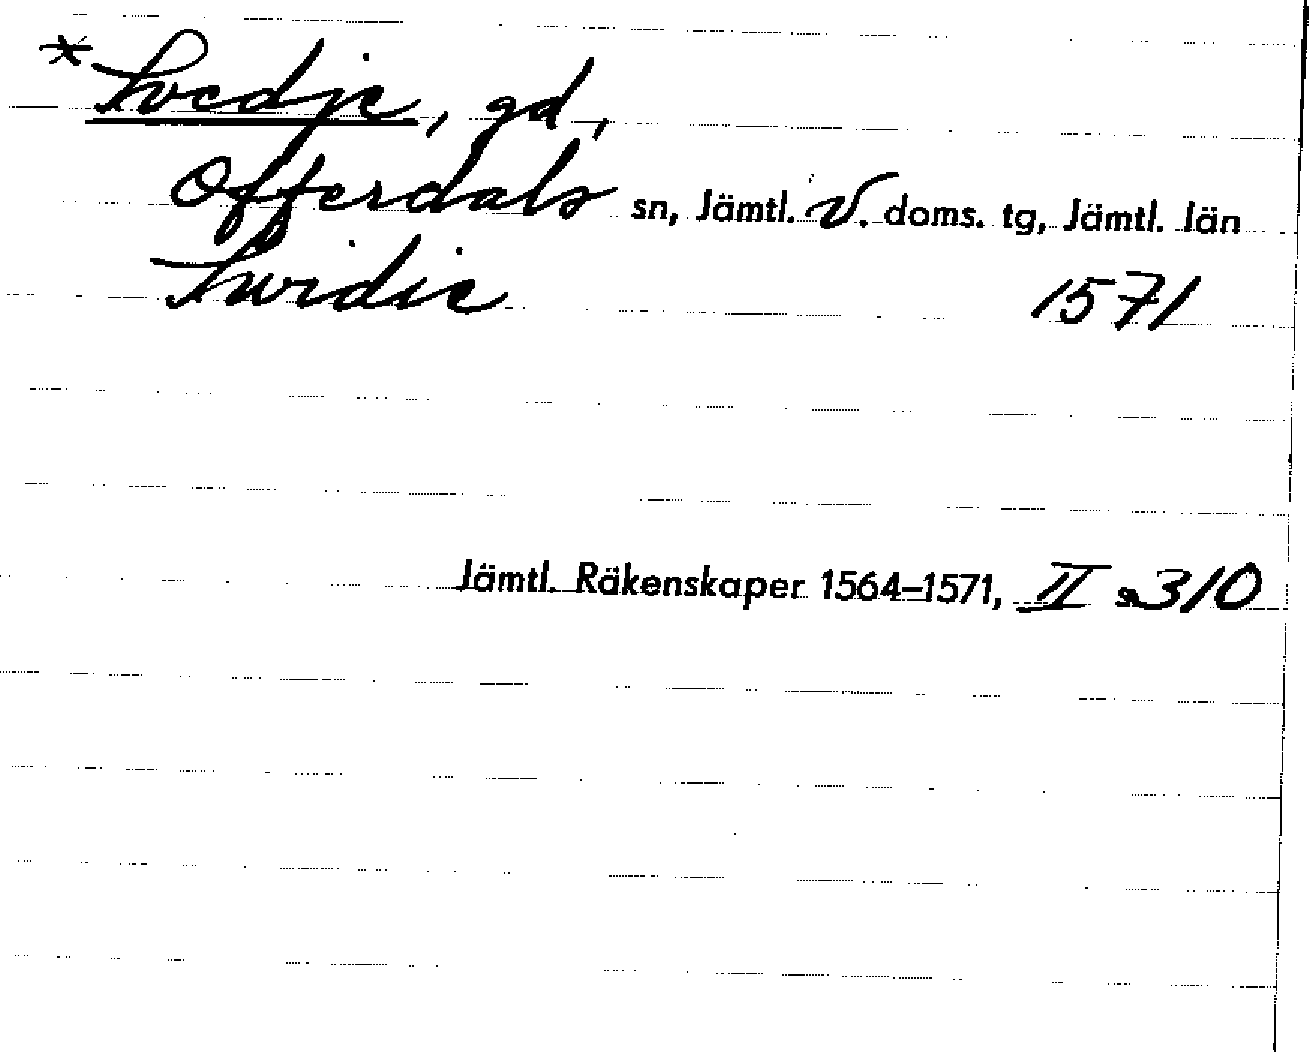 * Svedje, gd,
Offerdals sn, Jämtl. V. doms. tg, Jämtl. län
Swidie 1571
Jämtl. Räkenskaper 1564–1571, II s. 310